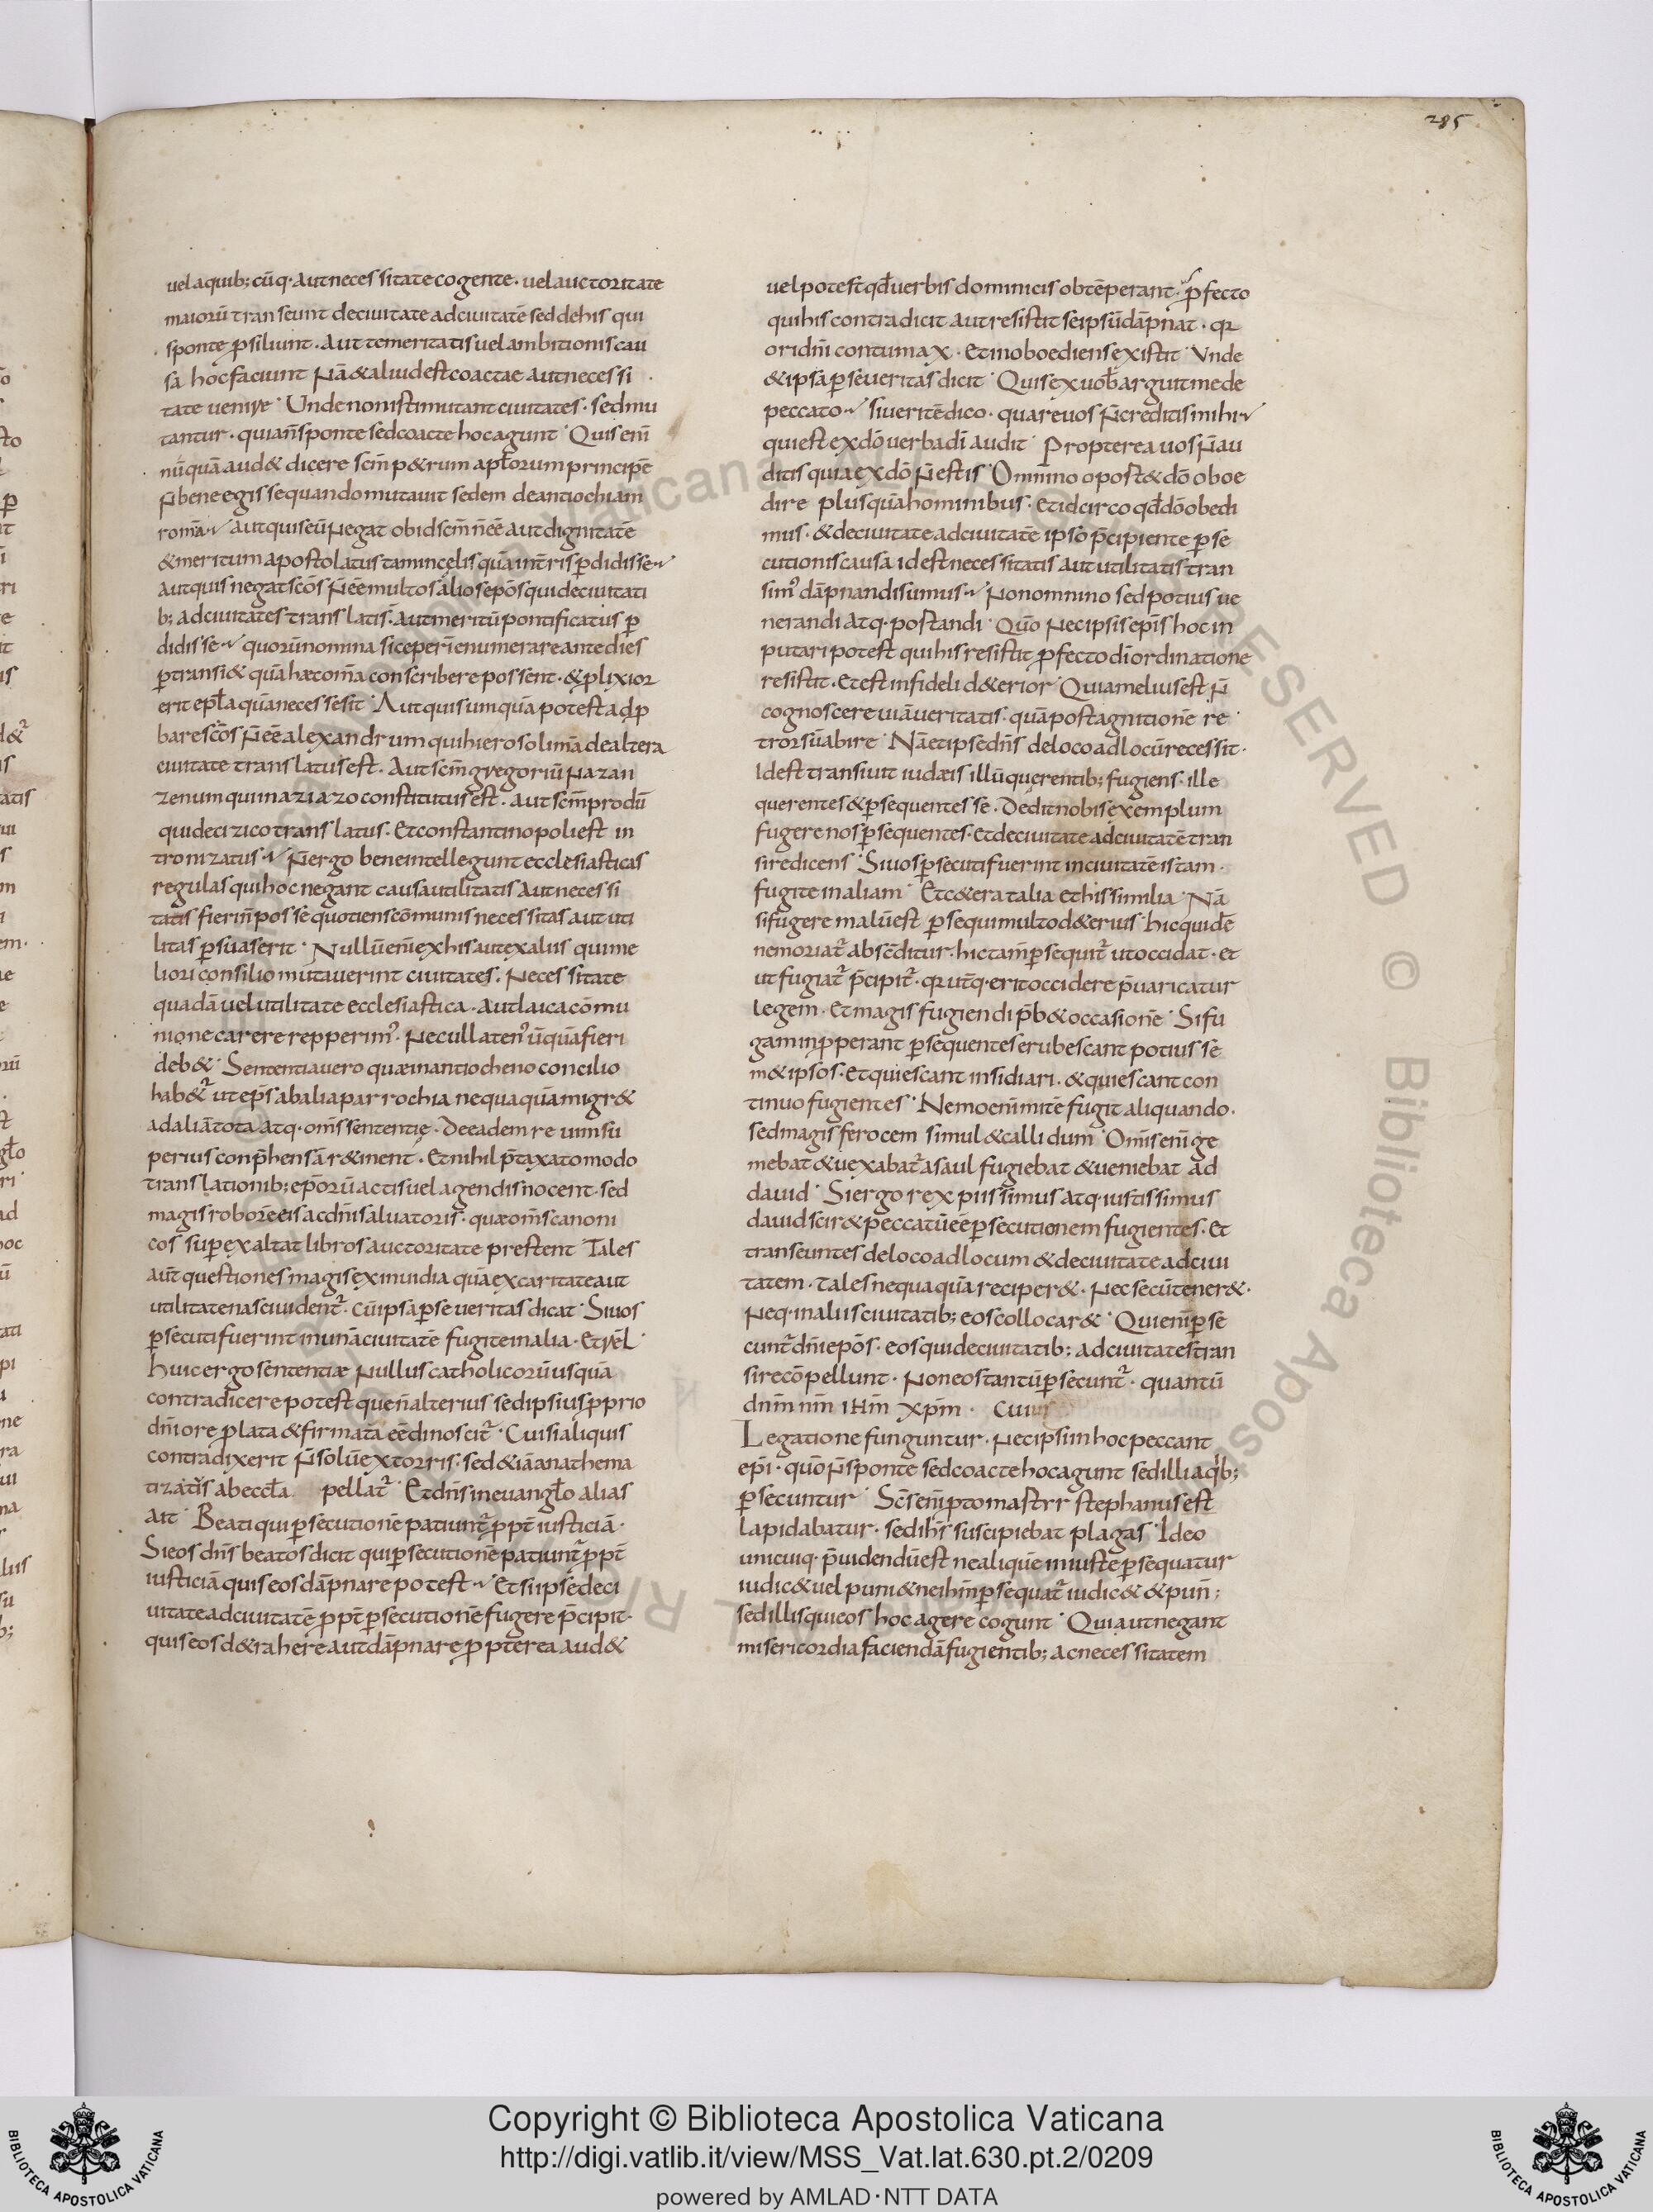 285
uel aquib; cūq· aut necessitate cogente· uel auctoritate
maiorū transeunt de ciuitate ad ciuitatē sed de his qui
sponte ꝓsiliunt· Aut temeritatis uel ambitionis cau
sa hoc faciunt Nā & aliud est coactae aut necessi
tate uenire· Unde non isti mutant ciuitates· sed mu
tantur· quia n̄ sponte sed coacte hoc agunt· Quis enī
nūquā aud& dicere sc̄m p&rum apt̄orum principē
n̄ bene egisse quando mutauit sedem de antiochia in
romā· aut quis eū negat ob id sc̄m n̄ eē aut dignitatē
& meritum apostolatus tam in celis quā in t̄ris ꝑdidisse
aut quis negat sc̄os n̄ eē multos alios ep̄os qui de ciuitati
b; ad ciuitates translatis· aut meritū pontificatus ꝑ
didisse quorū nomina si ceperī enumerare ante dies
ꝑtransi& quā haec om̄a conscribere possent· & ꝓlixior
erit epl̄a quā necesse sit· Aut quis umquā potest adꝓ
bare sc̄os n̄ eē alexandrum qui hierosolimā de altera
ciuitate translatus est· Aut sc̄m gregoriū nazan
zenum qui in aziazo constitutus est· aut sc̄m prodū
qui de cizico translatus· Et constantinopoli est in
tronizatus N̄ ergo bene intellegunt ecclesiasticas
regulas qui hoc negant causa utilitatis aut necessi
tatis fieri n̄ posse quotiens cōmunis necessitas aut uti
litas ꝑsuaserit· Nullū enī ex his aut ex aliis qui me
liori consilio mutauerint ciuitates· Necessitate
quadā uel utilitate ecclesiastica· aut laica cōmu
nione carere repperim᾽· Nec ullaten᾽ ūquā fieri
deb&· Sententia uero quae in antiocheno concilio
hab&ur ut ep̄s ab alia parrochia nequaquā migr&
ad aliā tota atq· om̄s sententię· De eadem re uim su
perius conp̄hensā r&inent· Et nihil p̄taxato modo
translationib; ep̄orū actis uel agendis nocent· sed
magis robore eis ac dn̄i saluatoris· quae om̄s canoni
cos suꝑexaltat libros auctoritate prestent Tales
aūt questiones magis ex inuidia quā ex caritate aut
utilitate nasci uident᾽· Cū ipsa ꝑ se ueritas dicat· Si uos
ꝑsecuti fuerint in unā ciuitatē fugite in alia· Et rel̄·
Huic ergo sententiae nullus catholicorū usquā
contradicere potest que n̄ alterius sed ipsius ꝓprio
dn̄i ore ꝓlata & firmata eē dinoscit᾽· Cui si aliquis
contradixerit n̄ solū extorris· sed & iā anathema
tizatus ab eccl̄a pellat᾽ Et dn̄s in euangl̄o alias
ait· Beati qui ꝑsecutionē patiunt᾽ ꝓpt̄ iusticiā·
Si eos dn̄s beatos dicit qui ꝑsecutionē patiunt᾽ ꝓpt̄
iusticiā quis eos dāpnare potest Et si ipse de ci
uitate ad ciuitatē ꝓpt̄ ꝑsecutionē fugere p̄cipit·
quis eos d&rahere aut dāpnare ꝓpterea aud&
uel potest qd̄ uerbis dominicis obtēperant· ꝓfecto
qui his contradicit aut resistit seipsū dāpnat· qr
ori dn̄i contumax· Et inoboediens existit Vnde
& ipsa ꝑ se ueritas dicit· Quis ex uob̄ arguit me de
peccato si ueritē dico· quare uos n̄ creditis mihi
qui est ex dō uerba dī audit· Propterea uos n̄ au
ditis quia ex dō n̄ estis· Omnino opost& dō oboe
dire plus quā hominibus· Et idcirco qd̄ dō obedi
mus· & de ciuitate ad ciuitatē ipso p̄cipiente ꝑse
cutionis causa id est necessitatis aut utilitatis tran
sim᾽ dāpnandi sumus Non omnino sed potius ue
nerandi atq· postandi· Quō nec ipsis ep̄is hoc in
putari potest qui his resistit ꝓfecto dī ordinatione
resistit· Et est infideli d&erior· Quia melius est n̄
cognoscere uiā ueritatis· quā post agnitionē re
trorsū abire· Nā et ipse dn̄s de loco ad locū recessit·
Id est transiuit iudaeis illū querentib; fugiens· ille
querentes & ꝑsequentes se· Dedit nobis exemplum
fugere nos ꝑsequentes· Et de ciuitate ad ciuitatē tran
sire dicens· Si uos ꝑsecuti fuerint in ciuitatē istam·
fugite in aliam· Et c&era talia et his similia· Nā
si fugere malū est ꝑsequi multo d&erius· hic quidē
ne moriat᾽ abscēditur· hic tam̄ ꝑsequit᾽ ut occidat· et
ut fugiat᾽ p̄cipit᾽· qr utq· erit occidere p̄uaricatur
legem· Et magis fugiendi p̄b& occasionē· Si fu
gam inꝓperant ꝑsequentes erubescant potius se
m&ipsos· Et quiescant insidiari· & quiescant con
tinuo fugientes· Nemo enī mitē fugit aliquando·
sed magis ferocem simul & callidum· Om̄is enī ge
mebat & uexabat᾽ a saul fugiebat & ueniebat ad
dauid· Si ergo rex piissimus atq· iustissimus
dauid scir& peccatū eē ꝑsecutionem fugientes· Et
transeuntes de loco ad locum & de ciuitate ad ciui
tatem· Tales nequaquā reciper&· Nec secū tener&·
Neq· in aliis ciuitatib; eos collocar&· Qui enī ꝑse
cunt᾽ dn̄i ep̄os· eos qui de ciuitatib; ad ciuitates tran
sire cōpellunt· Non eos tantū ꝑsecunt᾽· quantū
dn̄m nm̄ ihm̄ xpm̄· Cuius
Legatione funguntur· Nec ipsi in hoc peccant
ep̄i· quō n̄ sponte sed coacte hoc agunt sed illi a qb̄;
ꝑsecuntur· Sc̄s enī ptomastrr stephanus est
lapidabatur· sed ihs̄ suscipiebat plagas· Ideo
unicuiq· p̄uidendū est ne aliquē iniuste ꝑsequatur
iudic& uel puni& ne ihm̄ ꝑsequat᾽ iudic& & pun̄;
sed illis qui eos hoc agere cogunt· Qui aut negant
misericordia faciendā fugientib; ac necessitatem
Copyright © Biblioteca Apostolica Vaticana
http://digi.vatlib.it/view/MSS_Vat.lat.630.pt.2/0209
powered by AMLAD·NTT DATA